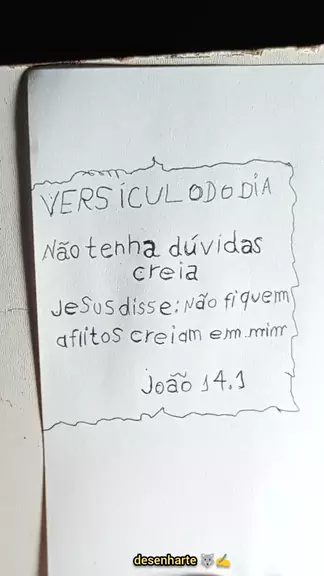 VERSÍCULO DO DIA
Não tenha dúvidas
creia
Jesus disse: Não fiquem
aflitos creiam em mim
João 14.1
desenharte 🐺✍️